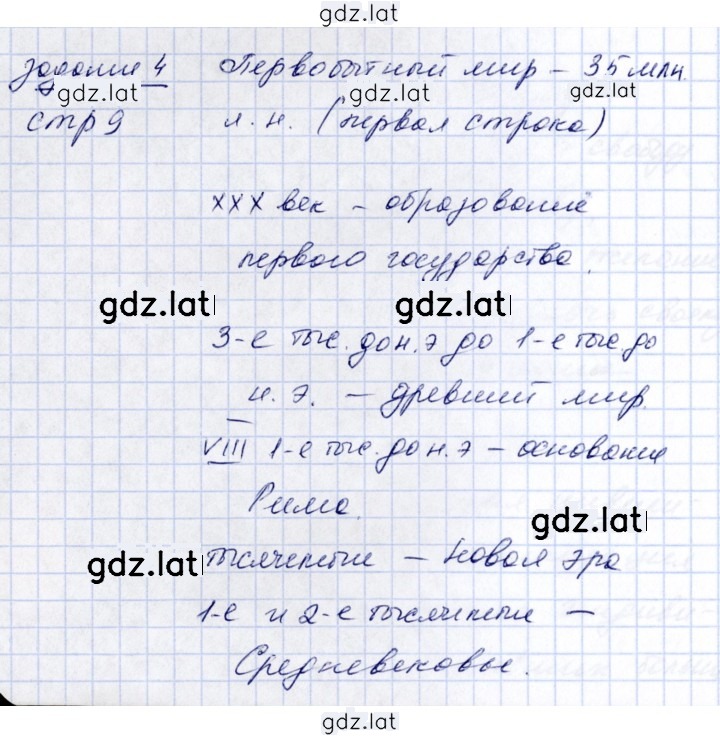 gdz.lat
задание 4 Первобытный мир – 35 млн.
gdz.lat gdz.lat gdz.lat
стр 9 л. н. (первая строка)
XXX век – образование
первого государства.
gdz.lat gdz.lat
3-е тыс. до н. э до 1-е тыс. до
н. э. – древний мир.
VIII 1-е тыс. до н. э – основание
Рима.
gdz.lat
gdz.lat
тысячелетие – Новая эра
1-е и 2-е тысячелетие –
Средневековье.
gdz.lat